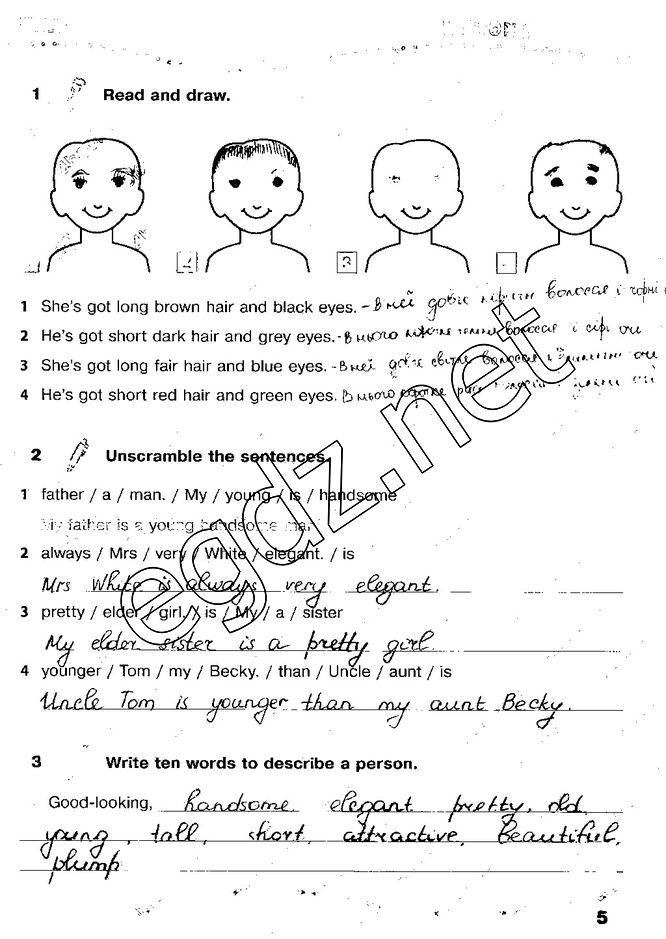 1 Read and draw.
3
1 She's got long brown hair and black eyes. - В неї довге волосся і чорні
2 He's got short dark hair and grey eyes. - В нього темне волосся і сірі очі
3 She's got long fair hair and blue eyes. - В неї довге світле волосся і очі
4 He's got short red hair and green eyes. В нього
2 Unscramble the sentences.
1 father / a / man. / My / young / is / handsome
My father is a young handsome man
2 always / Mrs / very / White / elegant. / is
Mrs White is always very elegant.
3 pretty / elder / girl. / is / My / a / sister
My elder sister is a pretty girl
4 younger / Tom / my / Becky. / than / Uncle / aunt / is
Uncle Tom is younger than my aunt Becky.
3 Write ten words to describe a person.
Good-looking, handsome elegant pretty, old
young, tall, short, attractive, beautiful,
plump
egdz.net
5